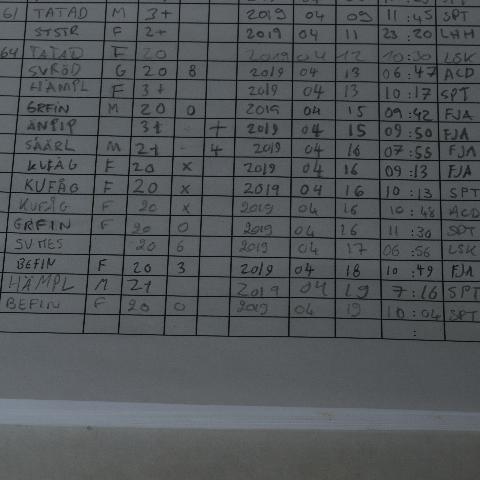 61 TATAD M 3+ 2019 04 09 11:45 SPT
STSTR F 2+ 2019 04 11 23:20 LHH
64 TATAD F 20 2019 04 12 10:30 LSK
SVRÖD G 20 8 2019 04 13 06:47 ACD
HÄMPL F 3+ 2019 04 13 10:17 SPT
GRFIN M 20 0 2019 04 15 09:42 FJA
ÄNPIP 3+ + 2019 04 15 09:50 FJA
SÄÄRL M 2+ 4 2019 04 16 07:55 FJA
KUFÅG F 20 x 2019 04 16 09:13 FJA
KUFÅG F 20 x 2019 04 16 10:13 SPT
KUFÅG F 20 x 2019 04 16 10:48 ACD
GRFIN F 20 0 2019 04 16 11:30 SPT
SVMES 20 6 2019 04 17 06:56 LSK
BEFIN F 20 3 2019 04 18 10:49 FJA
HÄMPL M 2+ 2019 04 19 7:16 SPT
BEFIN F 20 0 2019 04 19 10:04 SPT
: